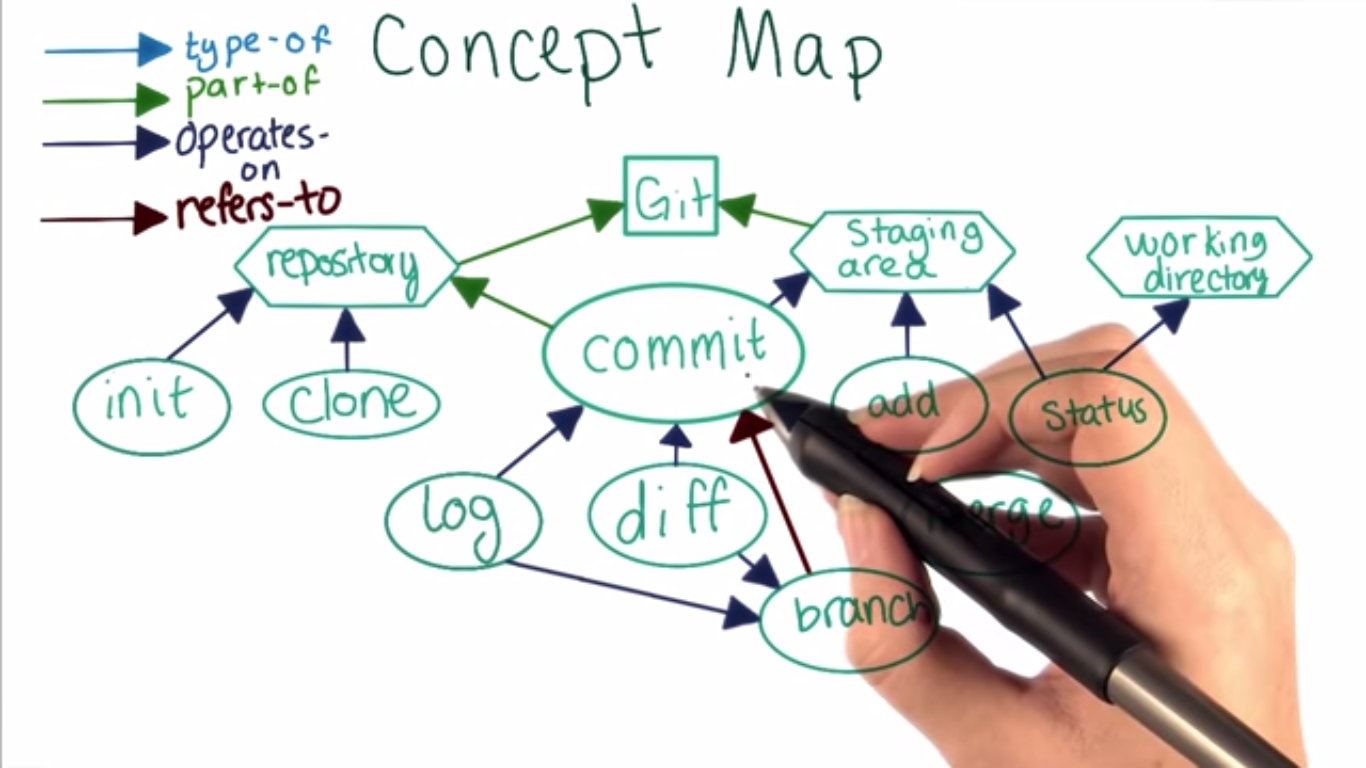 type-of
part-of
operates-
on
refers-to
Concept Map
Git
repository
Staging
area
working
directory
commit
init
clone
add
Status
log
diff
merge
branch